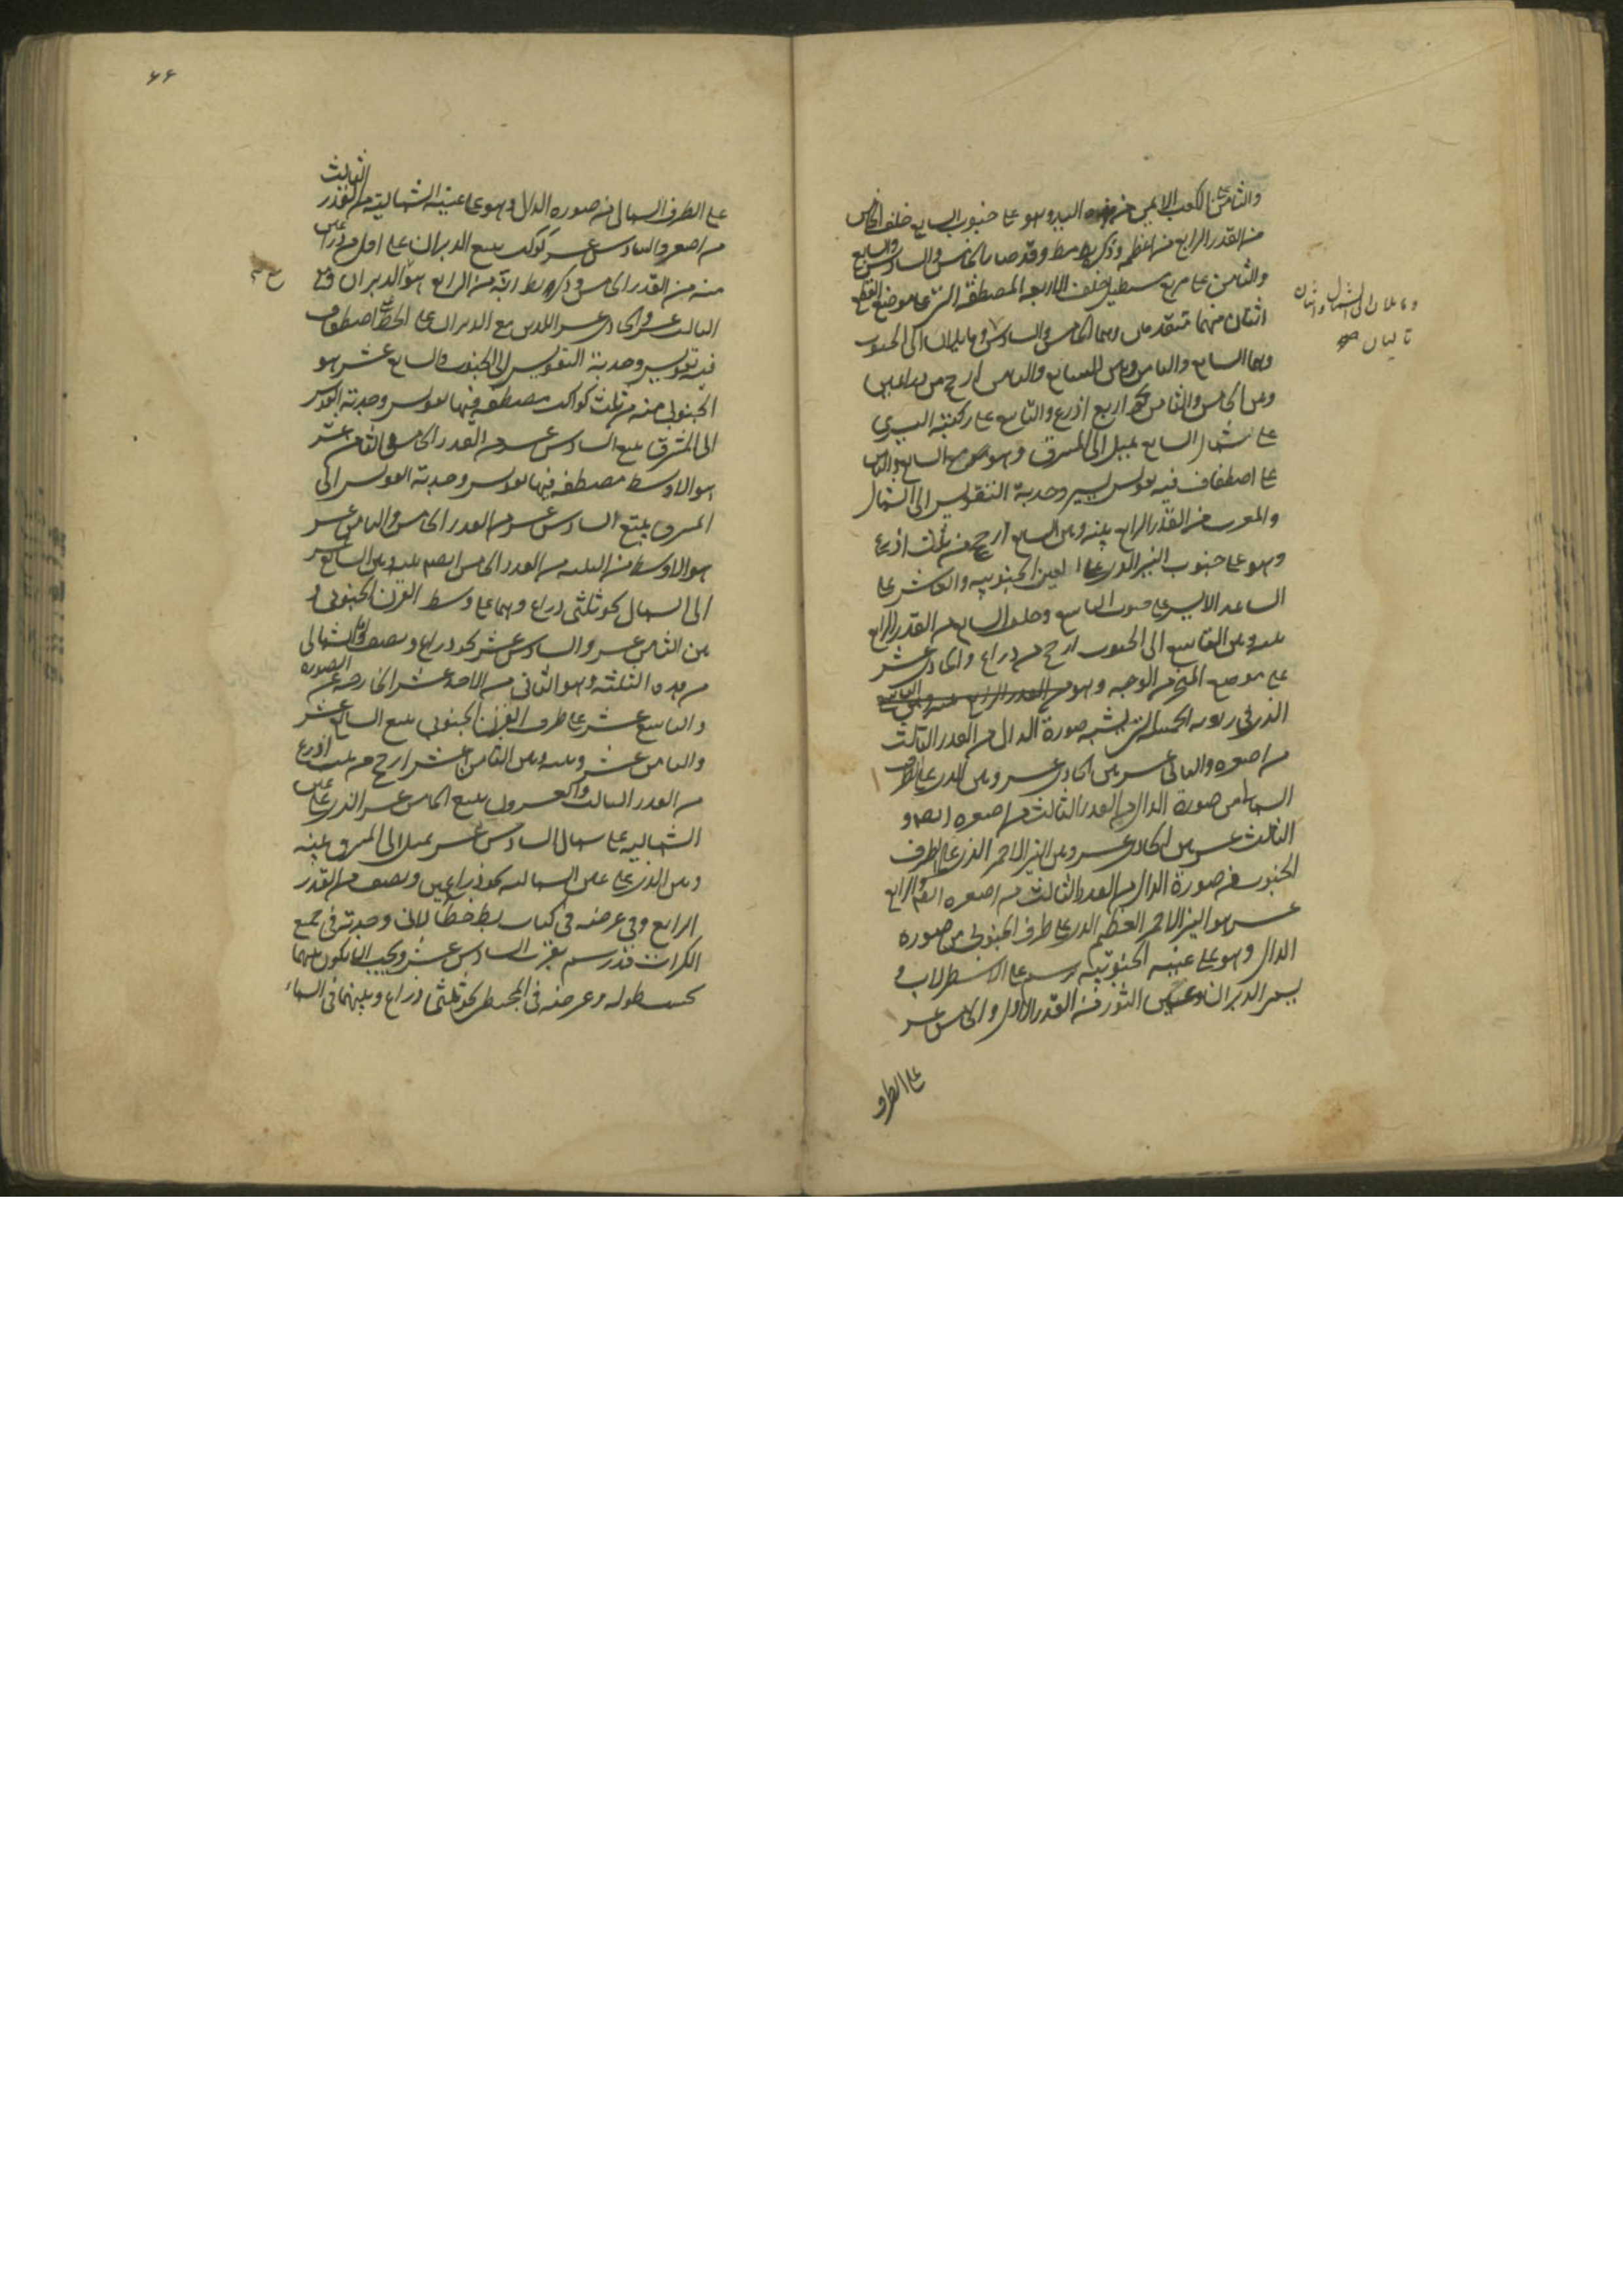 والثامن على الكعب الايمن من هذه اليد وهو على جنوب السابع خلف الخامس
من القدر الرابع من اعظمه وذكر بطلميوس وقد صار الخامس والسادس والسابع
والثامن على مربع مستطيل خلف الاربعة المصطفة التي على موضع القطع
اثنان منهما متقدمان وهما الخامس والسادس وما يليان الى الجنوب
وهما السابع والثامن وبين السابع والثامن ارجح من ذراعين
وبين الخامس والثامن نحو اربع اذرع والتاسع على ركبته اليسرى
على شمال السابع يميل الى المشرق وهو مع السابع والثامن
على اصطفاف فيه تقويس يسير وحدبة التقويس الى الشمال
والمغرب من القدر الرابع بينه وبين السابع ارجح من ثلث اذرع
وهو على جنوب النير الذي على العين الجنوبية والعاشر على
الساعد الايسر على جنوب التاسع وخلف السابع من القدر الرابع
بينه وبين التاسع الى الجنوب ارجح من ذراع والحادي عشر
على موضع المنخر من الوجه وهو من القدر الرابع بينه وبين التاسع
الذي في زاوية الخمسة التي تشبه صورة الدال من القدر الثالث
من اصغره والثاني عشر بين الحادي عشر وبين الذي على الطرف
الشمالي من صورة الدال من القدر الثالث من اصغره ايضا و
الثالث عشر بين الحادي عشر وبين النير الاحمر الذي على الطرف
الجنوب من صورة الدال من القدر الثالث من اصغره ايضا والرابع
عشر هو النير الاحمر العظيم الذي على طرف الجنوبي من صورة
الدال وهو على عينه الجنوبية يرسم على الاسطرلاب و
يسمى الدبران وعين الثور من القدر الاول والخامس عشر
على الطرف
وما يلان الى الشمال واثنان
تاليان صح
٦٦
على الطرف الشمالي من صورة الدال وهو على عينه الشمالية من القدر الثالث
من اصغره والسادس عشر كوكب يتبع الدبران على اقل من ذراعين
منه من القدر الخامس وذكر بطلميوس انه من الرابع هو والدبران وقع
الثالث عشر والحادي عشر اللذين مع الدبران على الخط على اصطفاف
فيه تقويس وحدبة التقويس الى الجنوب والسابع عشر هو
الجنوبي منه من ثلث كواكب مصطفة فيها تقويس وحدبة القوس
الى المشرق يتبع السادس عشر من القدر الخامس والثامن عشر
هو الاوسط مصطفة فيها تقويس وحدبة القويس الى
المشرق يتبع السادس عشر من القدر الخامس والثامن عشر
هو الاوسط من الثلثة من القدر الخامس ايضا بينه وبين السابع عشر
الى الشمال نحو ثلثي ذراع وهما على وسط القرن الجنوبي و
بين الثامن عشر والسادس عشر نحو ذراع ونصف واما الشمالي
من هذه الثلثة وهو الثاني من الاحد عشر الخارجة عن الصورة
والتاسع عشر على طرف القرن الجنوبي يتبع السابع عشر
والثامن عشر وبينه وبين الثامن عشر ارجح من ثلث اذرع
من القدر الثالث والعشرون يتبع الخامس عشر الذي على عين
الشمالية على شمال السادس عشر يميل الى المشرق بينه
وبين الذي على عين الشمالية نحو ذراعين ونصف من القدر
الرابع وفي عرضه في كتاب بطلميوس خطأ لاني وجدته في جميع
الكرات قد رسم بقرب السادس عشر ويجب ان يكون بينهما
بحسب طوله وعرضه في المجسطي نحو ثلثي ذراع وبينهما في السماء